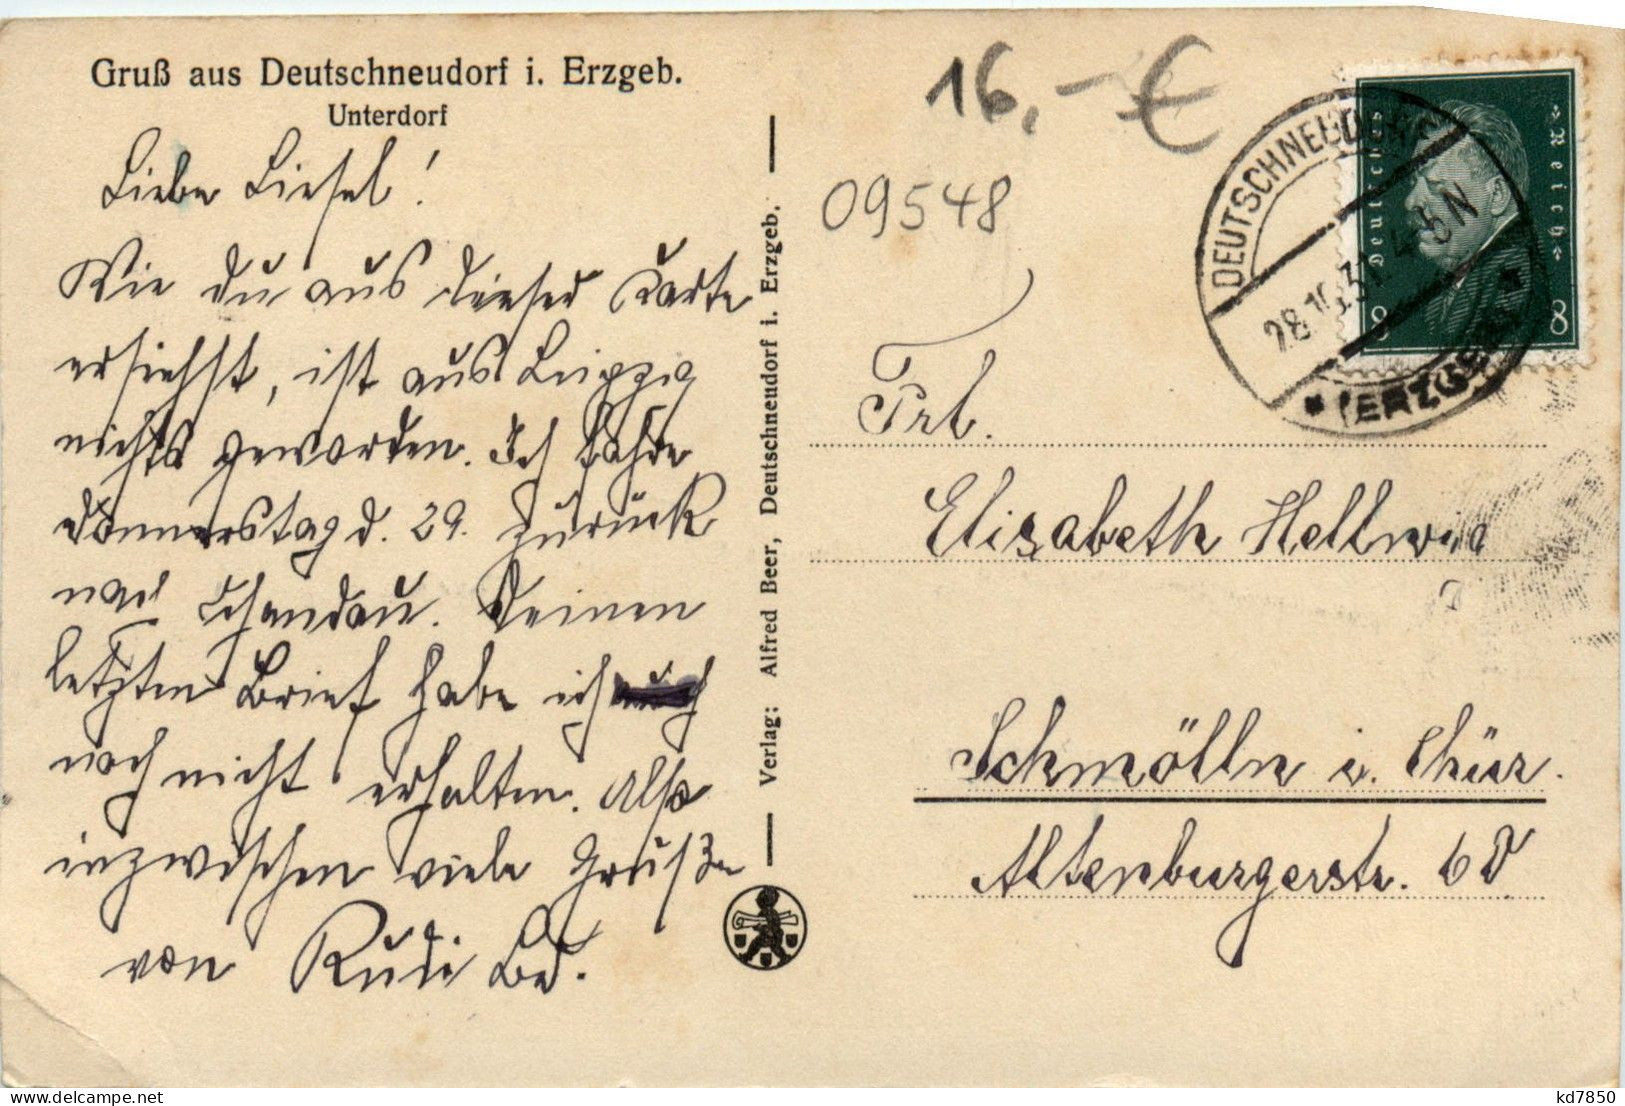 Gruß aus Deutschneudorf i. Erzgeb.
Unterdorf
Liebe Liesel!
Wie du aus dieser Karte
ersiehst, ist aus Leipzig
nichts geworden. Ich fahre
Donnerstag d. 29. zurück
nach Schandau. Deinen
letzten Brief habe ich
noch nicht erhalten. Also
inzwischen viele Grüße
von Rudi
Verlag: Alfred Beer, Deutschneudorf i. Erzgeb.
16,- €
09548
DEUTSCHNEUDORF
28.10.31. 4-5 N
(ERZGEB)
Deutsches Reich
8 8
Frl.
Elisabeth Hellwig
Schmölln i. Thür.
Altenburgerstr. 60
kd7850